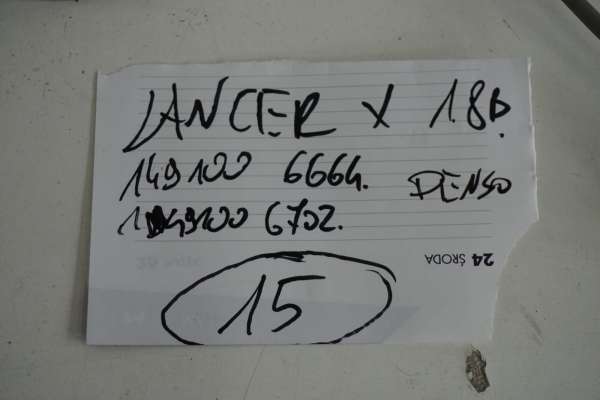 LANCER X 1.8b.
149100 6664. DENSO
149100 6702.
24 ŚRODA
15